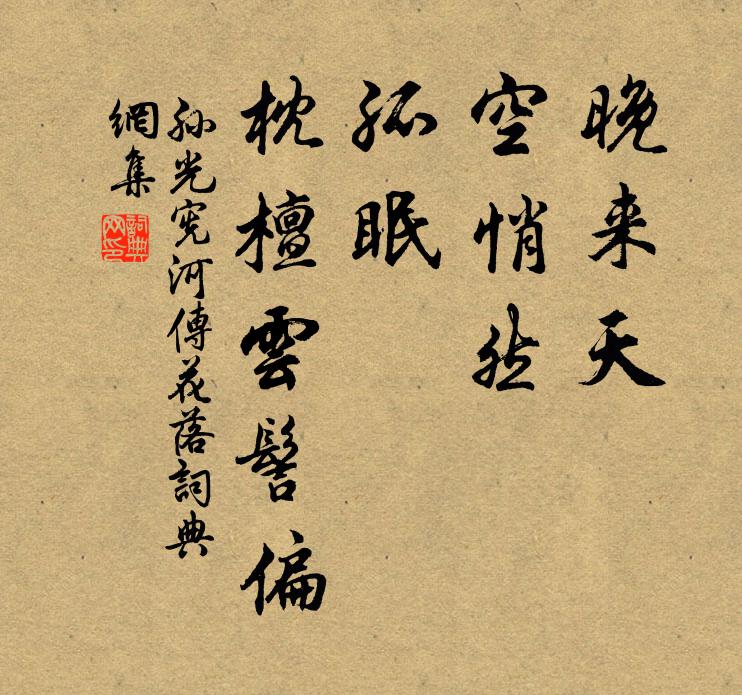 晚来天
空悄然
孤眠
枕檀雲髻偏
孙光宪河傳花落詞典
網集
詞典网印